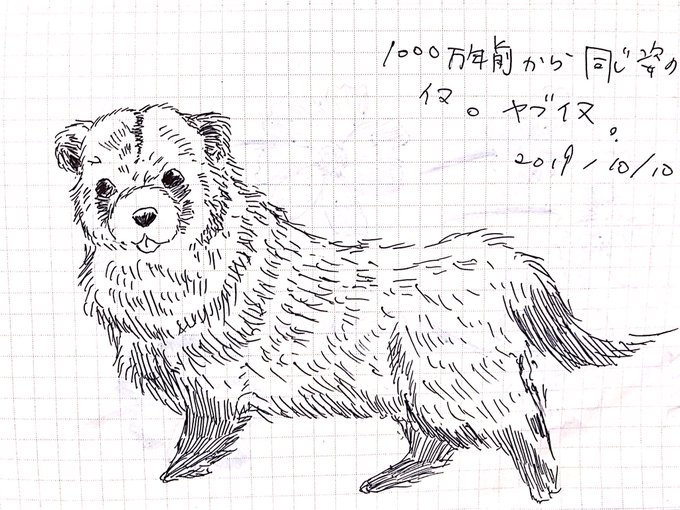 1000万年前から同じ姿の
イヌ。ヤブイヌ。
2019/10/10